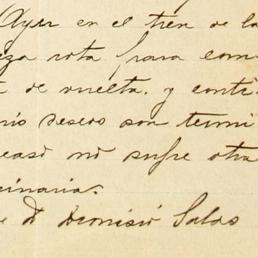 Ayer en el tren de la
eza rota para com
de vuelta. y conti
mis deseos son termi
acaso no sufre otra
inaria.
e D. Dionisio Salas